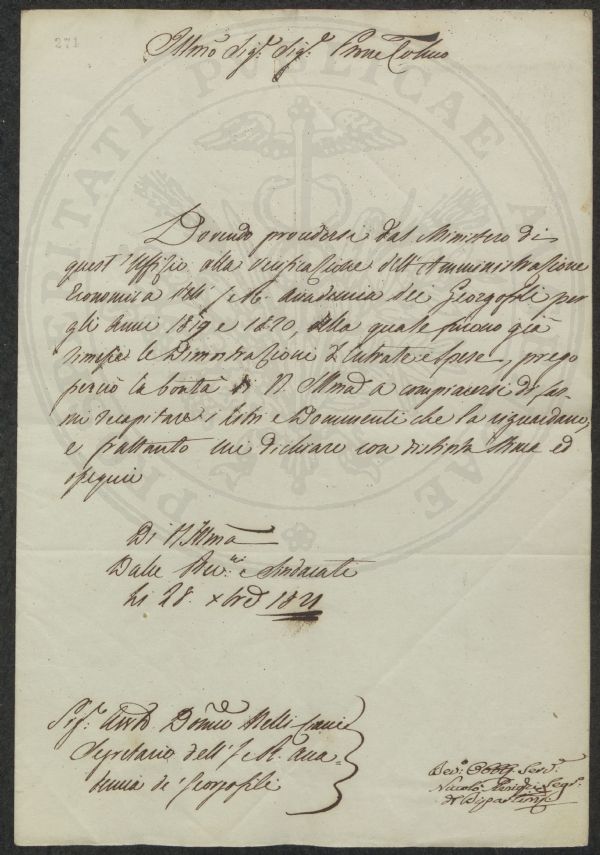 271
Illmo Sigr. Sigr. Prone Colmo
Dovendo procedersi dal Ministero di
quest'Uffizio alla verificazione dell'Amministrazione
Economica dell'I. e R. Accademia dei Georgofili per
gli Anni 1819 e 1820, della quale furono già
rimesse le Dimostrazioni d'Entrate e Spese, prego
perciò la bontà di V. Illma a compiacersi di far-
mi recapitare i Libri e Documenti che la riguardano,
e frattanto mi dichiaro con distinta stima ed
ossequio
Di V. Illma
Dalle Revni. e Sindacati
li 28. Xbre 1821
Sigr. Domco
Segretario dell'I. e R. Acca-
demia de' Georgofili
Devo. Obblo. Serv.
Segr.
di Dipartimto
PROSPERITATI PUBLICAE AUGENDAE